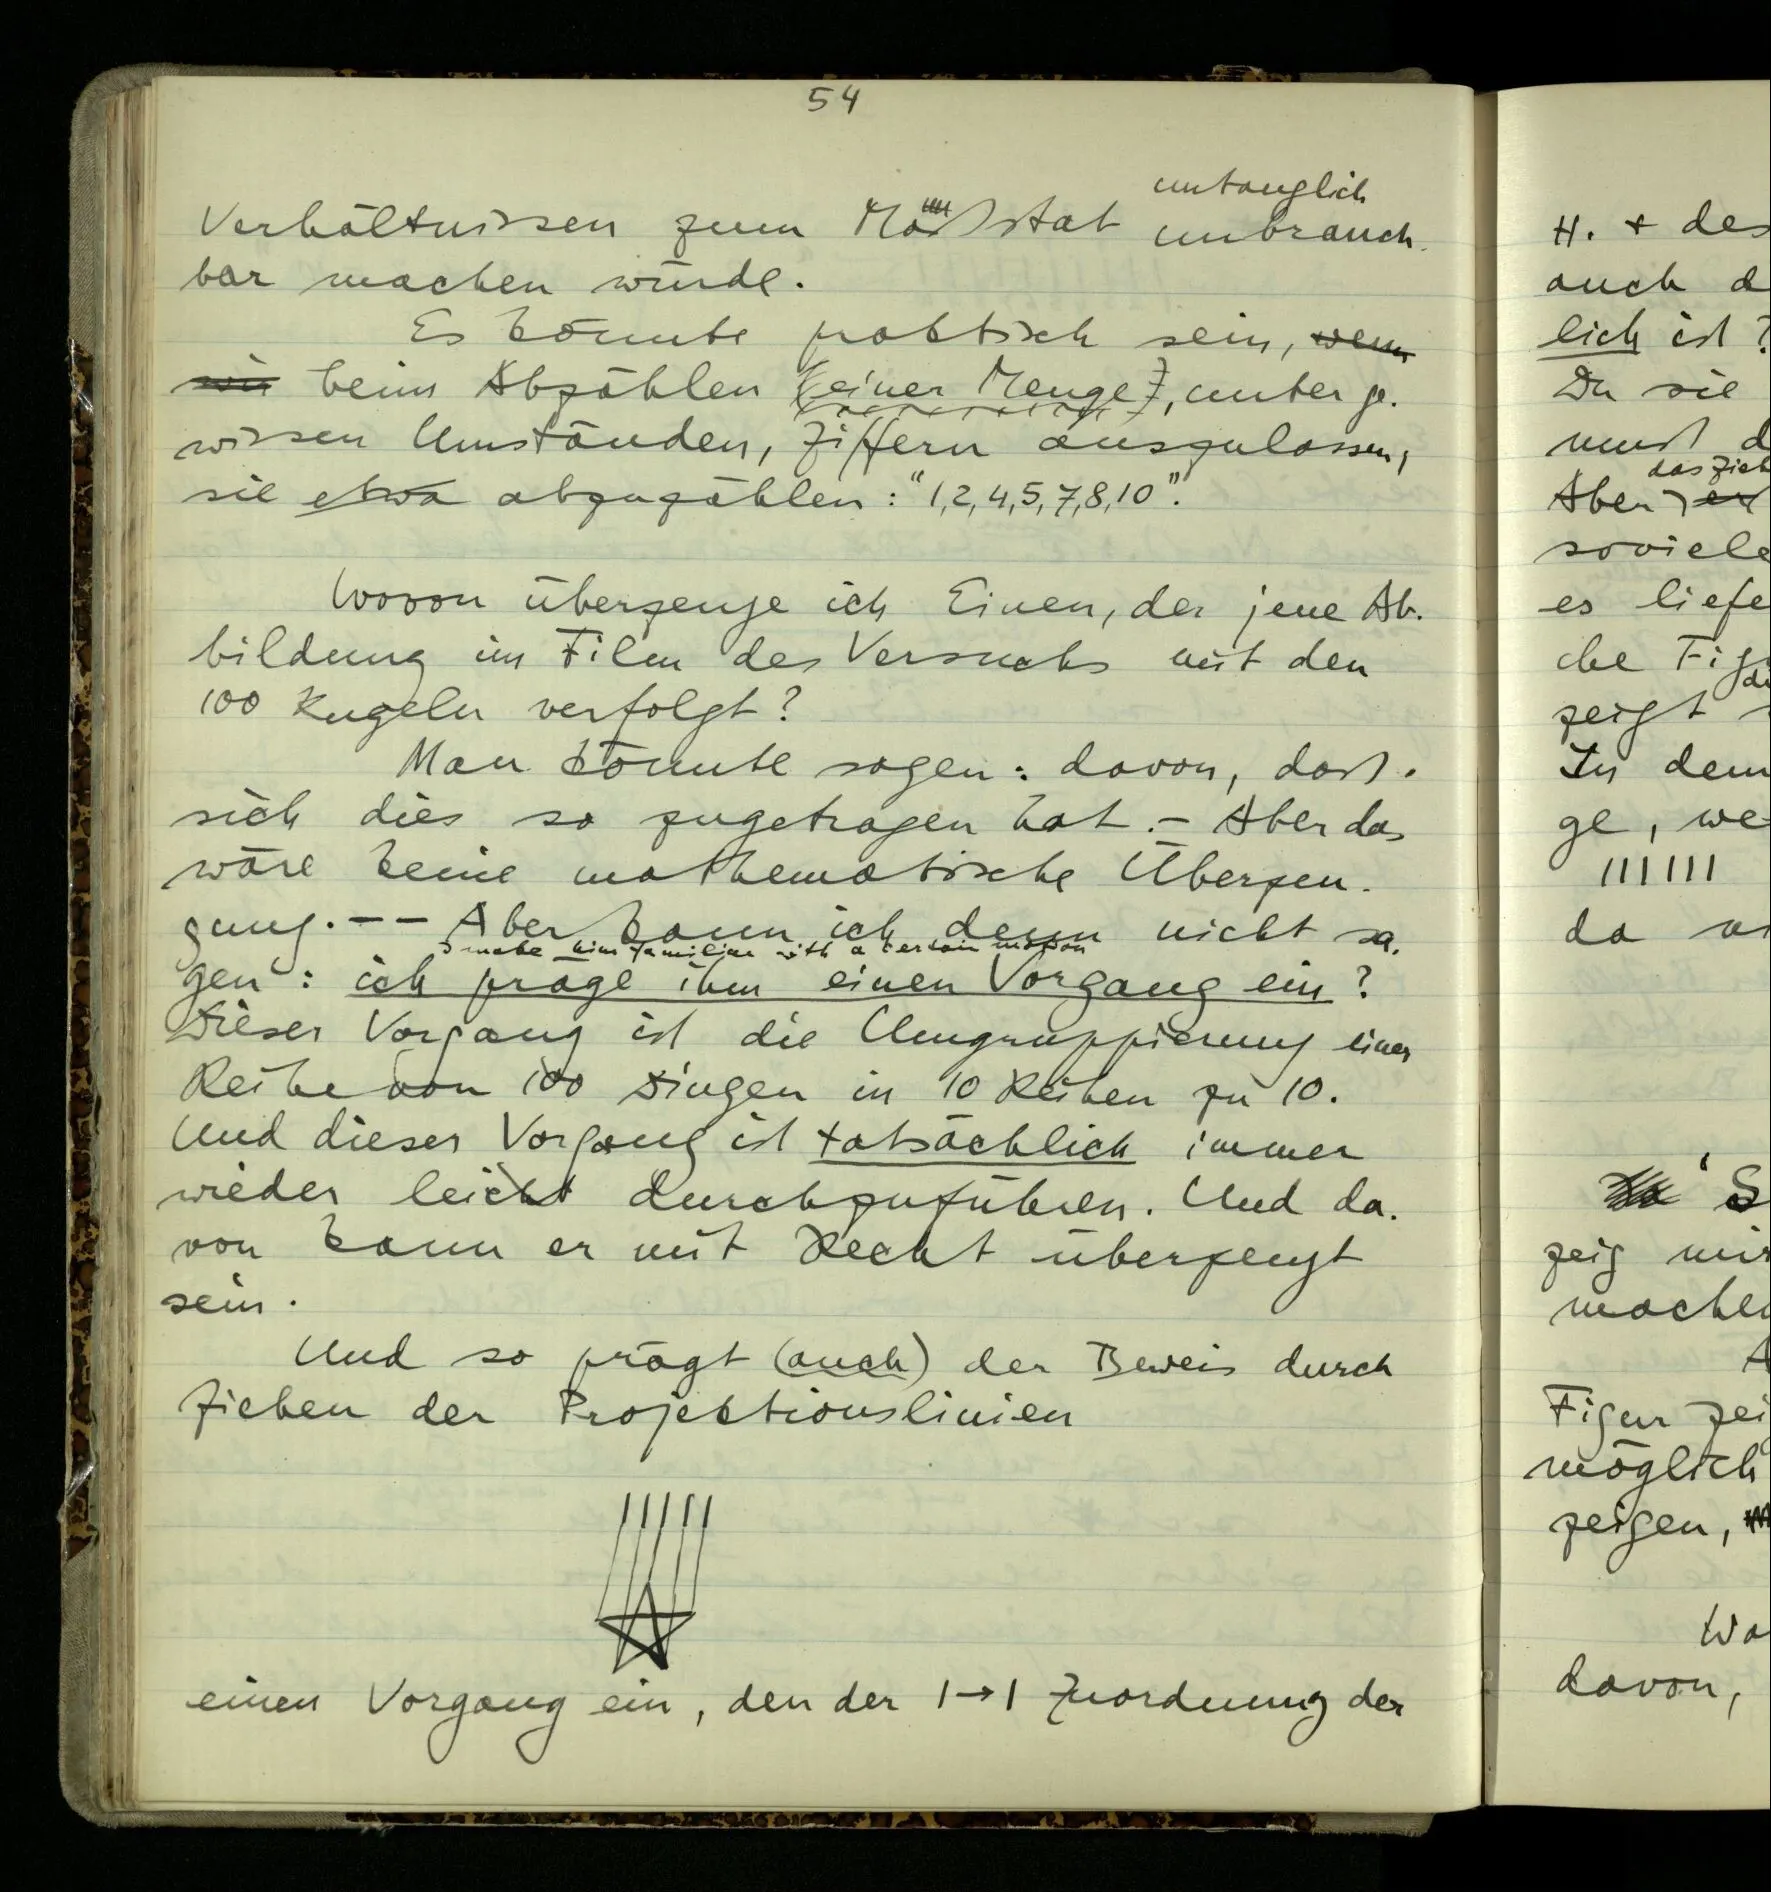 54
untauglich
Verhältnissen zum Maßstab unbrauch-
bar machen würde.
Es könnte praktisch sein, wenn
wir beim Abzählen (einer Menge), unter ge-
wissen Umständen, Ziffern auszulassen,
sie etwa abzuzählen: "1,2,4,5,7,8,10".
Wovon überzeuge ich Einen, der jene Ab-
bildung im Film des Versuchs mit den
100 Kugeln verfolgt?
Man könnte sagen: davon, daß
sich dies so zugetragen hat. – Aber das
wäre keine mathematische Überzeu-
gung. – – Aber kann ich denn nicht sa-
I make him familiar with a certain motion
gen: ich präge ihm einen Vorgang ein?
Dieser Vorgang ist die Umgruppierung einer
Reihe von 100 Dingen in 10 Reihen zu 10.
Und dieser Vorgang ist tatsächlich immer
wieder leicht durchzuführen. Und da-
von kann er mit Recht überzeugt
sein.
Und so prägt (auch) der Beweis durch
Ziehen der Projektionslinien
einen Vorgang ein, den der 1→1 Zuordnung der
H. + des
auch d
lich ist?
Du sie
mußt d
das Zieh
Aber er
soviele
es liefe
che Fig
zeigt
In dem
ge, we
||||||
da
S
zeig mir
machen
A
Figur zei
möglich
zeigen,
Wo
davon,